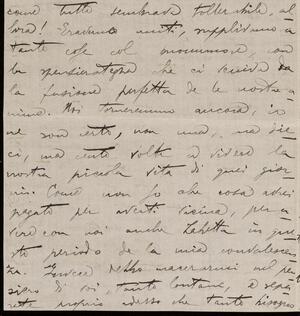 come tutto sembrava tollerabile, al
lora! Eravamo uniti, supplivamo a
tante cose col nommome, con
la spensieratezza che ci veniva da
la fusione perfetta de le nostre a
nime. Noi torneremo ancora, io
ne son certo, non una, ma die
ci, ma cento volte a vivere la
nostra piccola vita di quei gior
ni. Come non so che cosa avrei
pagato per averti vicina, per a
vere con noi anche in que
sto periodo de la mia convalescen
za. invece debbo macerarmi nel pen
siero di voi, tanto lontane, e sepa
rate proprio adesso che tanto bisogno